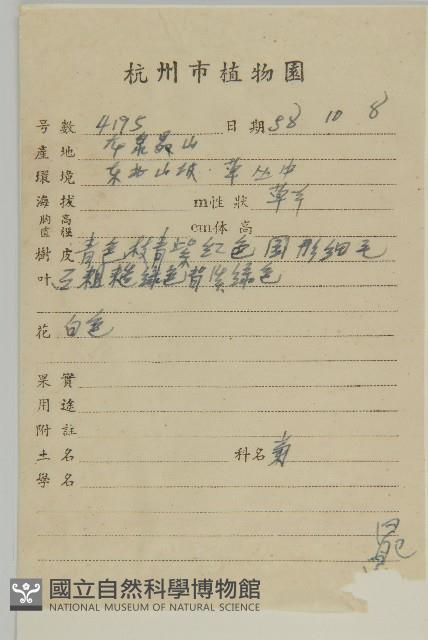 杭州市植物園
号數 4195 日期 58 10 8
產地 山
環境 东北山坡 草丛中
海拔 m性狀 草本
胸高直徑 cm体高
樹皮 青色 枝青紫红色 圆形细毛
叶 互 粗糙 绿色 背炭绿色
花 白色
果實
用途
附註
土名 科名 菊
學名
國立自然科學博物館
NATIONAL MUSEUM OF NATURAL SCIENCE